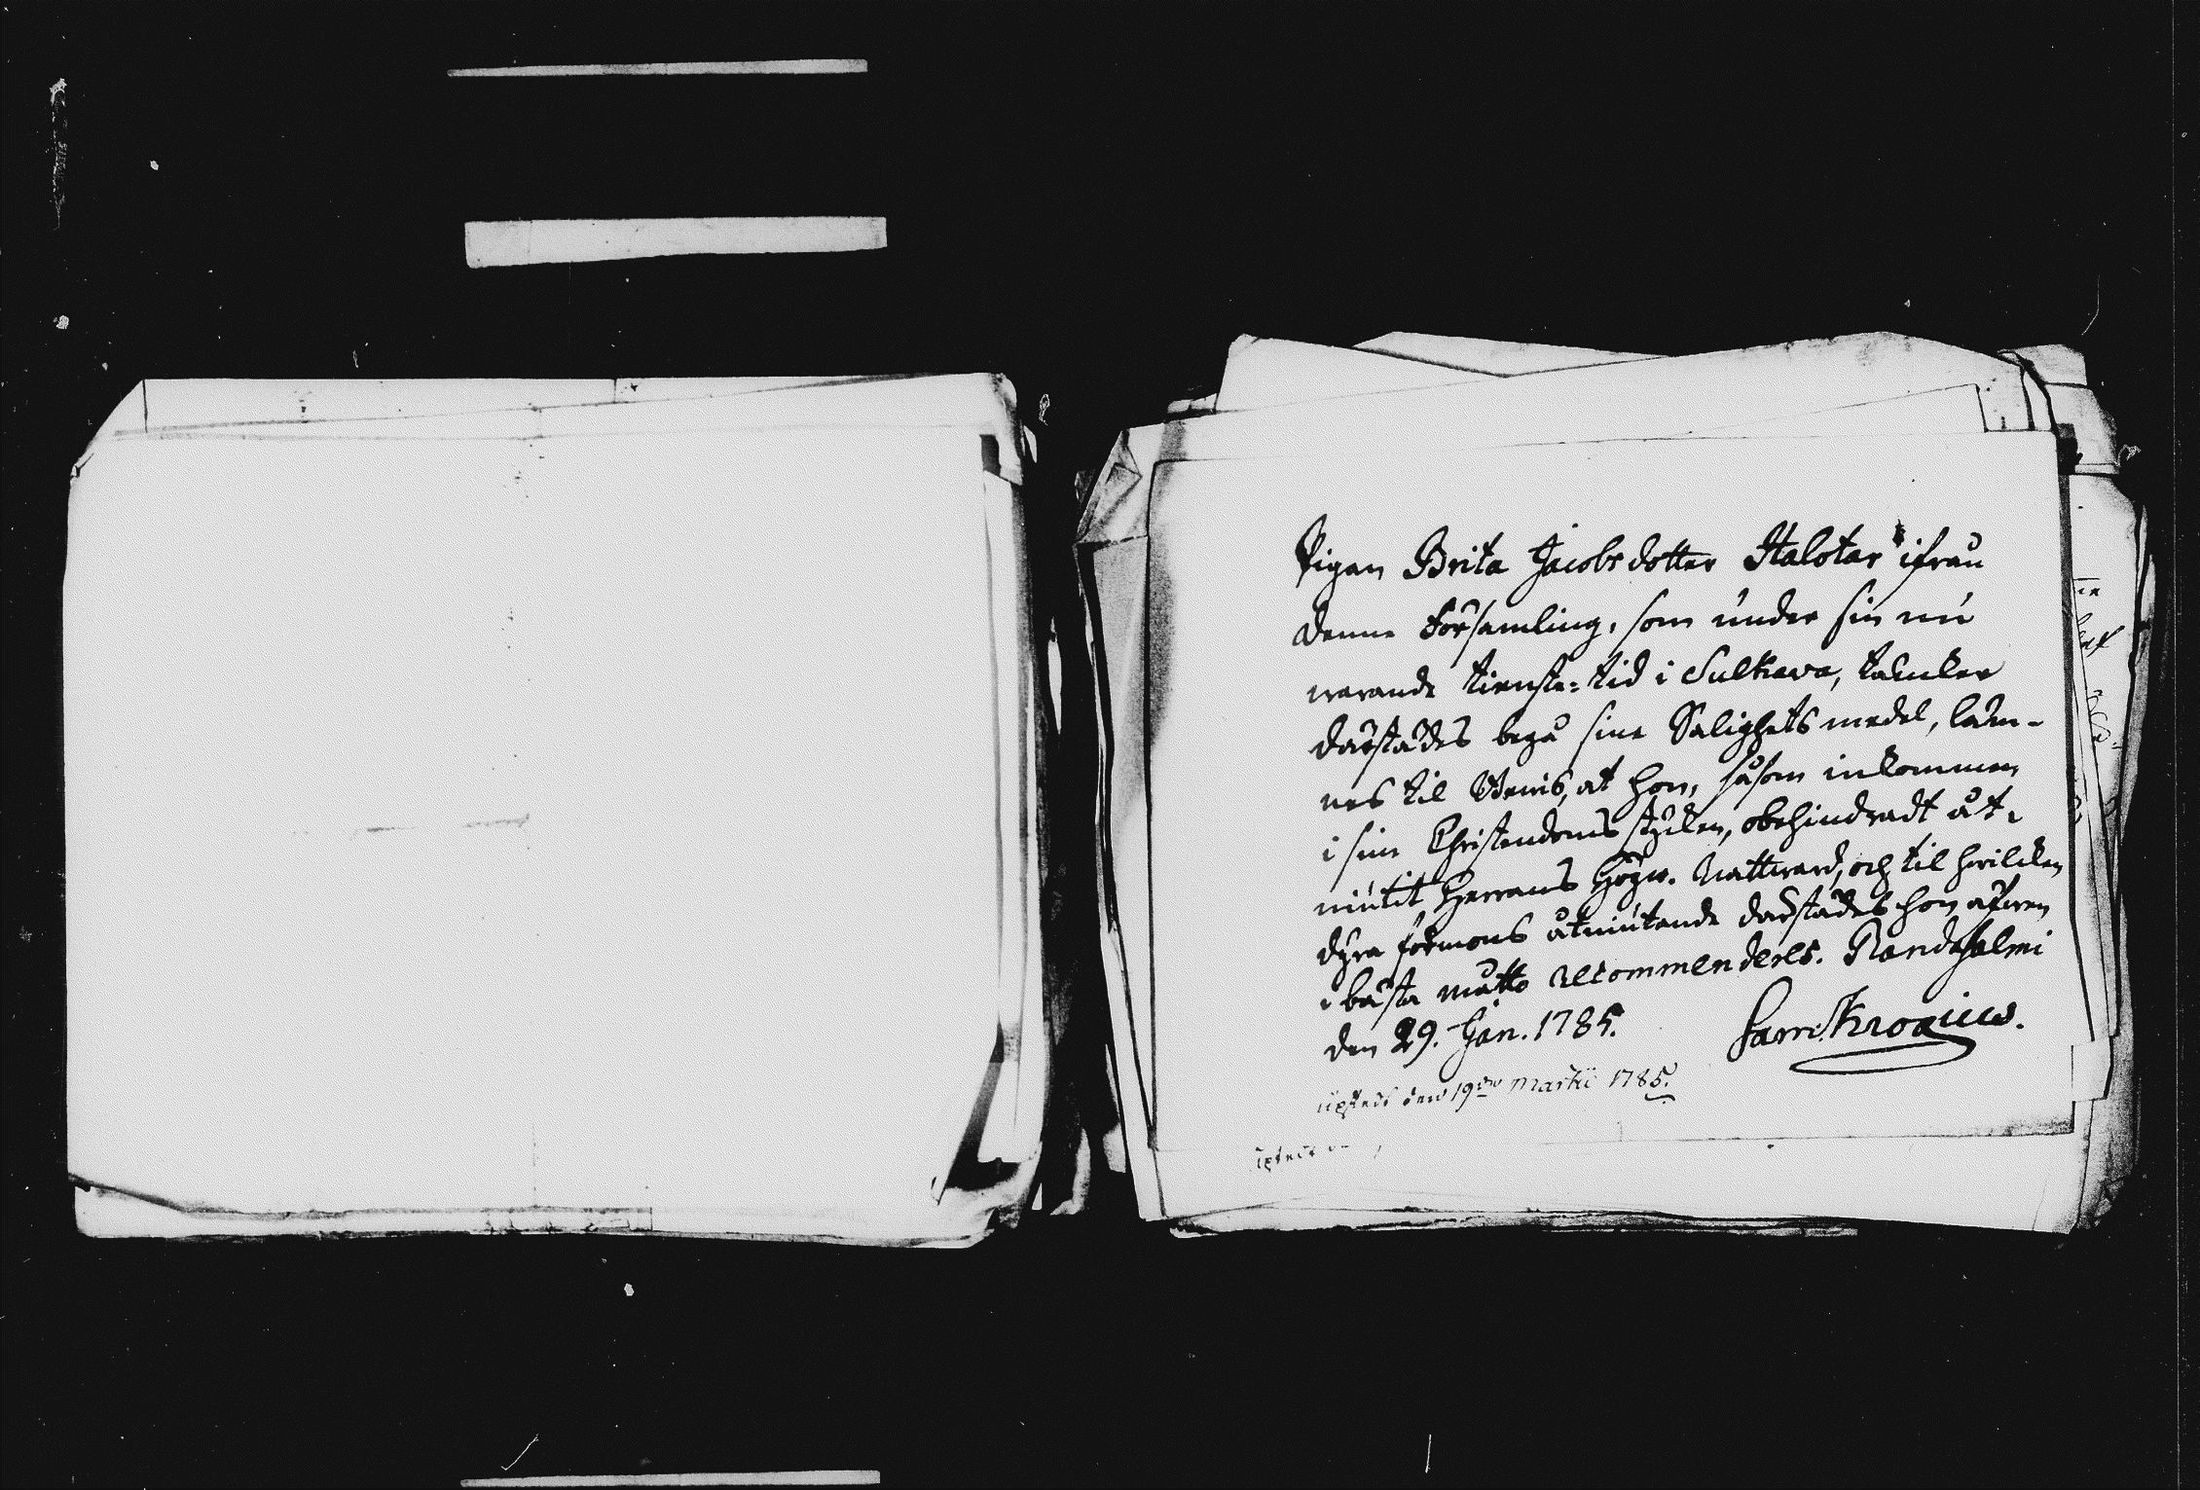 Pigan Brita Jacobsdotter Italotar ifrån
denne Församling, som under sin nu
warande tienste-tid i Sulkava, tänker
därstädes begå sine Salighets medel, läm-
nes til Bewis, at hon, såsom inkommen
i sine Christendoms stycken, obehindradt åt-
niutit Herrans Högw. Nattward, och til hwilcken
dyra förmons åtniutande därstädes hon äfwen
i bästa måtto recommenderes. Randasalmi
den 29. Jan. 1785. Sam: Krogius.
den 19de Martii 1785.